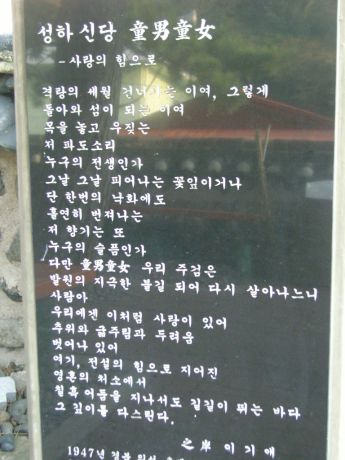 성하신당 童男童女
-사랑의 힘으로
격랑의 세월 건너가는 이여, 그렇게
돌아와 섬이 되는 이여
목을 놓고 우짖는
저 파도소리
누구의 전생인가
그날 그날 피어나는 꽃잎이거나
단 한번의 낙화에도
홀연히 번져나는
저 향기는 또
누구의 슬픔인가
다만 童男童女 우리 주검은
발원의 지극한 불길 되어 다시 살아나느니
사람아
우리에겐 이처럼 사랑이 있어
추위와 굶주림과 두려움
벗어나 있어
여기, 전설의 힘으로 지어진
영혼의 처소에서
칠흑 어둠을 지나서도 길길이 뛰는 바다
그 깊이를 다스린다.
之岸 이기애
1947년 경북